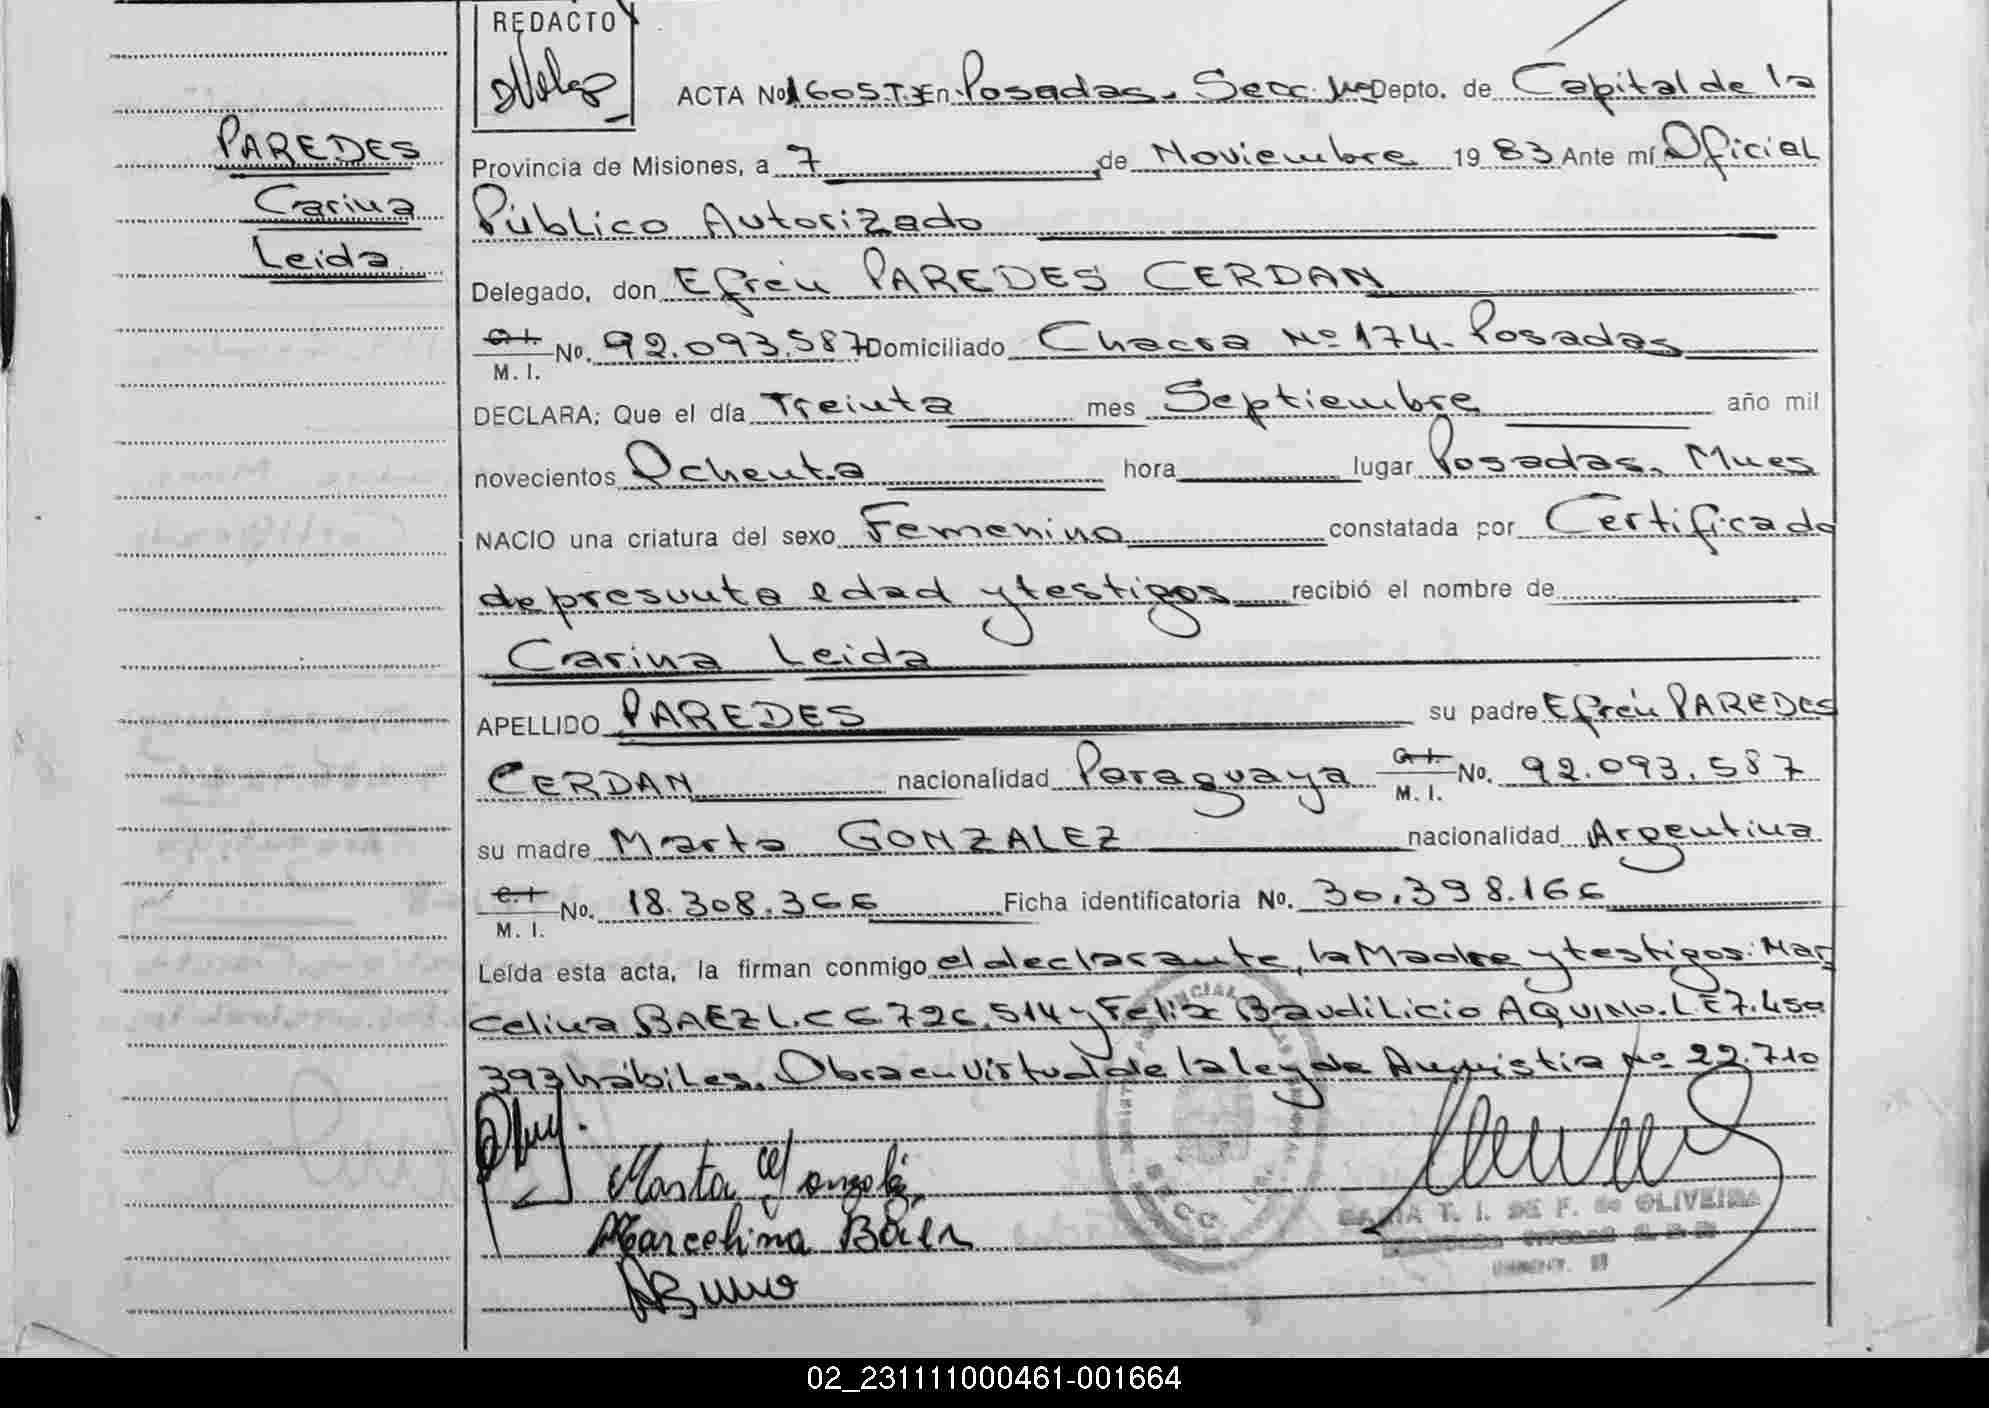 REDACTO
ACTA No 1605.T.3 En Posadas. Secc. 1ra Depto. de Capital de la
PAREDES
Carina
Leida
Provincia de Misiones, a 7 de Noviembre 1983 Ante mí Oficial
Público Autorizado
Delegado, don Efrén PAREDES CERDAN
C. I. M. I. No. 92.093.587 Domiciliado Chacra Nº 174. Posadas
DECLARA; Que el día Treinta mes Septiembre año mil
novecientos Ochenta hora lugar Posadas. Mnes
NACIO una criatura del sexo Femenino constatada por Certificado
de presunta edad y testigos recibió el nombre de
Carina Leida
APELLIDO PAREDES su padre Efrén PAREDES
CERDAN nacionalidad Paraguaya C. I. M. I. No. 92.093.587
su madre Marta GONZALEZ nacionalidad Argentina
C. I. M. I. No. 18.308.366 Ficha identificatoria No. 30.398.166
Leída esta acta, la firman conmigo el declarante, la Madre y testigos: Mar
celina BAEZ L.C 6.726.514 y Felix Baudilicio AQUINO. L E 7.450
393 hábiles. Obra en virtud de la ley de Amnistia Nº 22.710
Marta González
Marcelina Báez
MARIA T. I. DE F. de OLIVEIRA
02_231111000461-001664